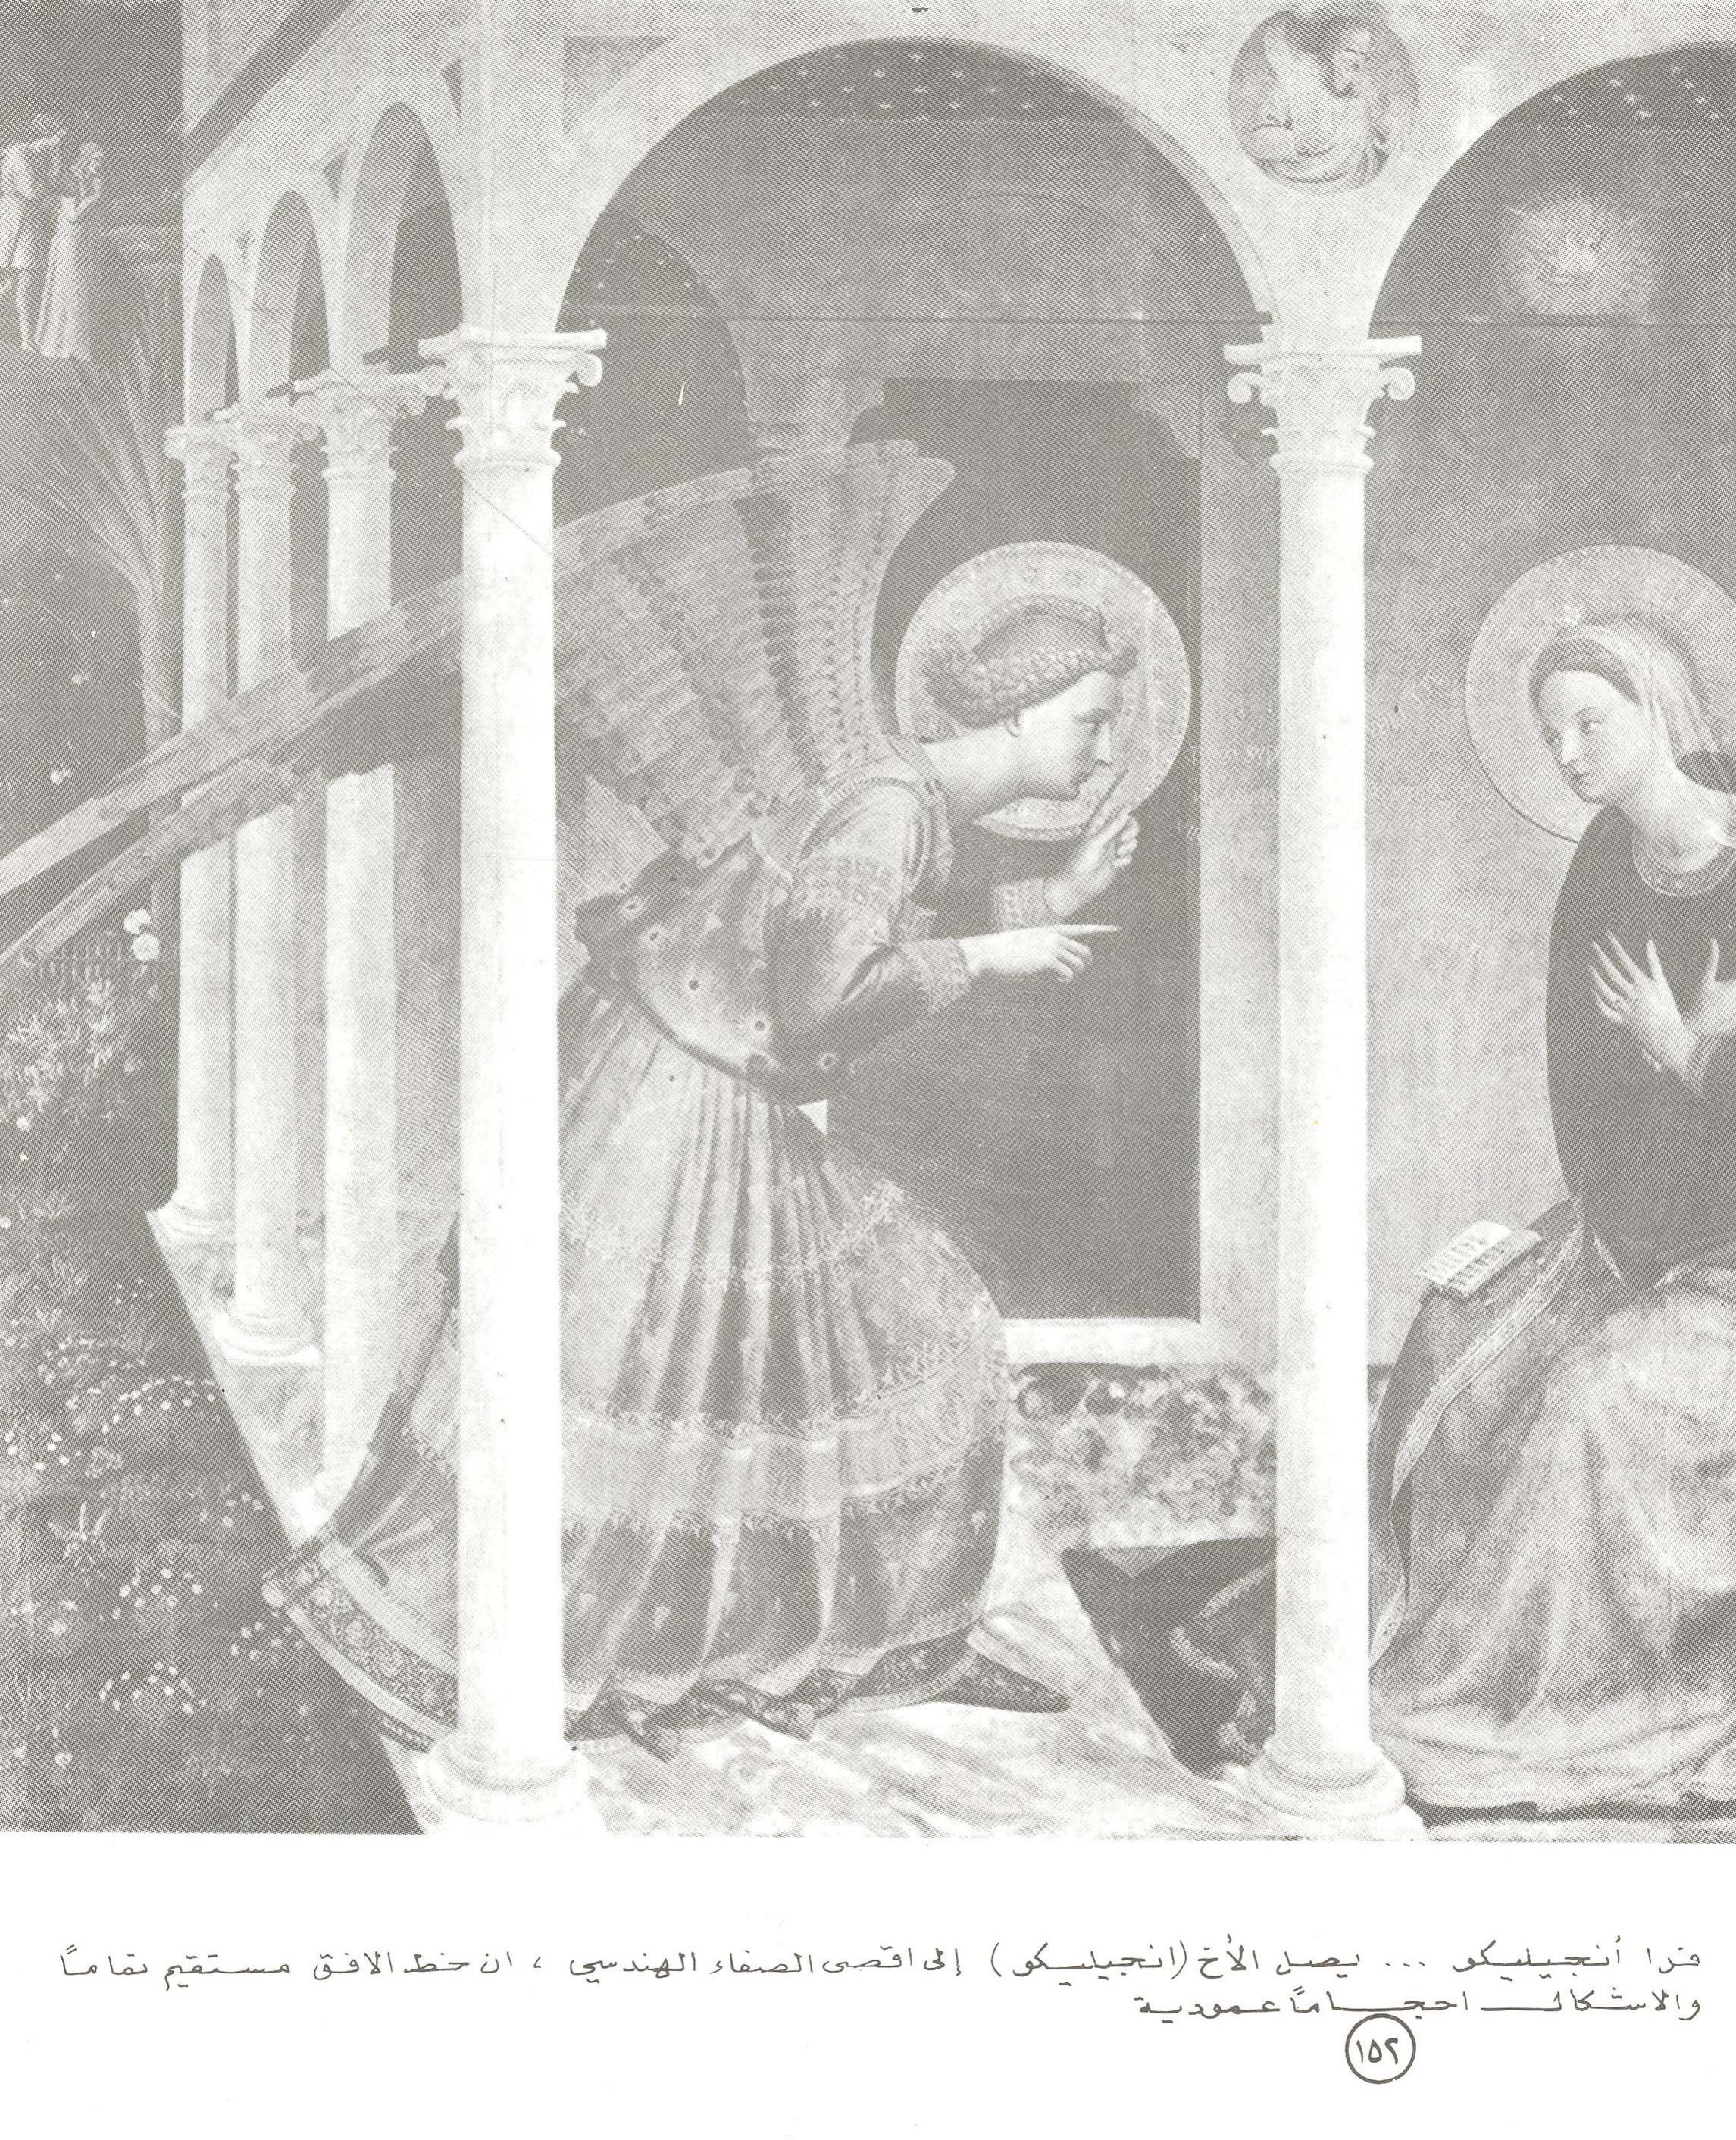 فرا أنجيليكو ... يصل الأخ (انجيليكو) إلى اقصى الصفاء الهندسي ، ان خط الافق مستقيم تماماً
والاشكال احجاماً عمودية
١٥٢